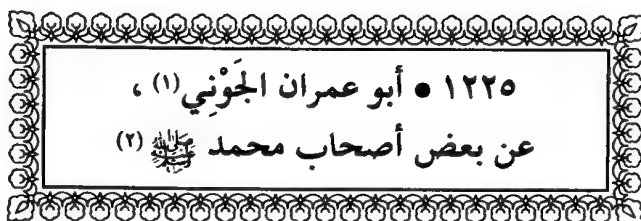 ١٢٢٥ • أبو عمران الجَوْنِي(١) ،
عن بعض أصحاب محمد ﷺ (٢)